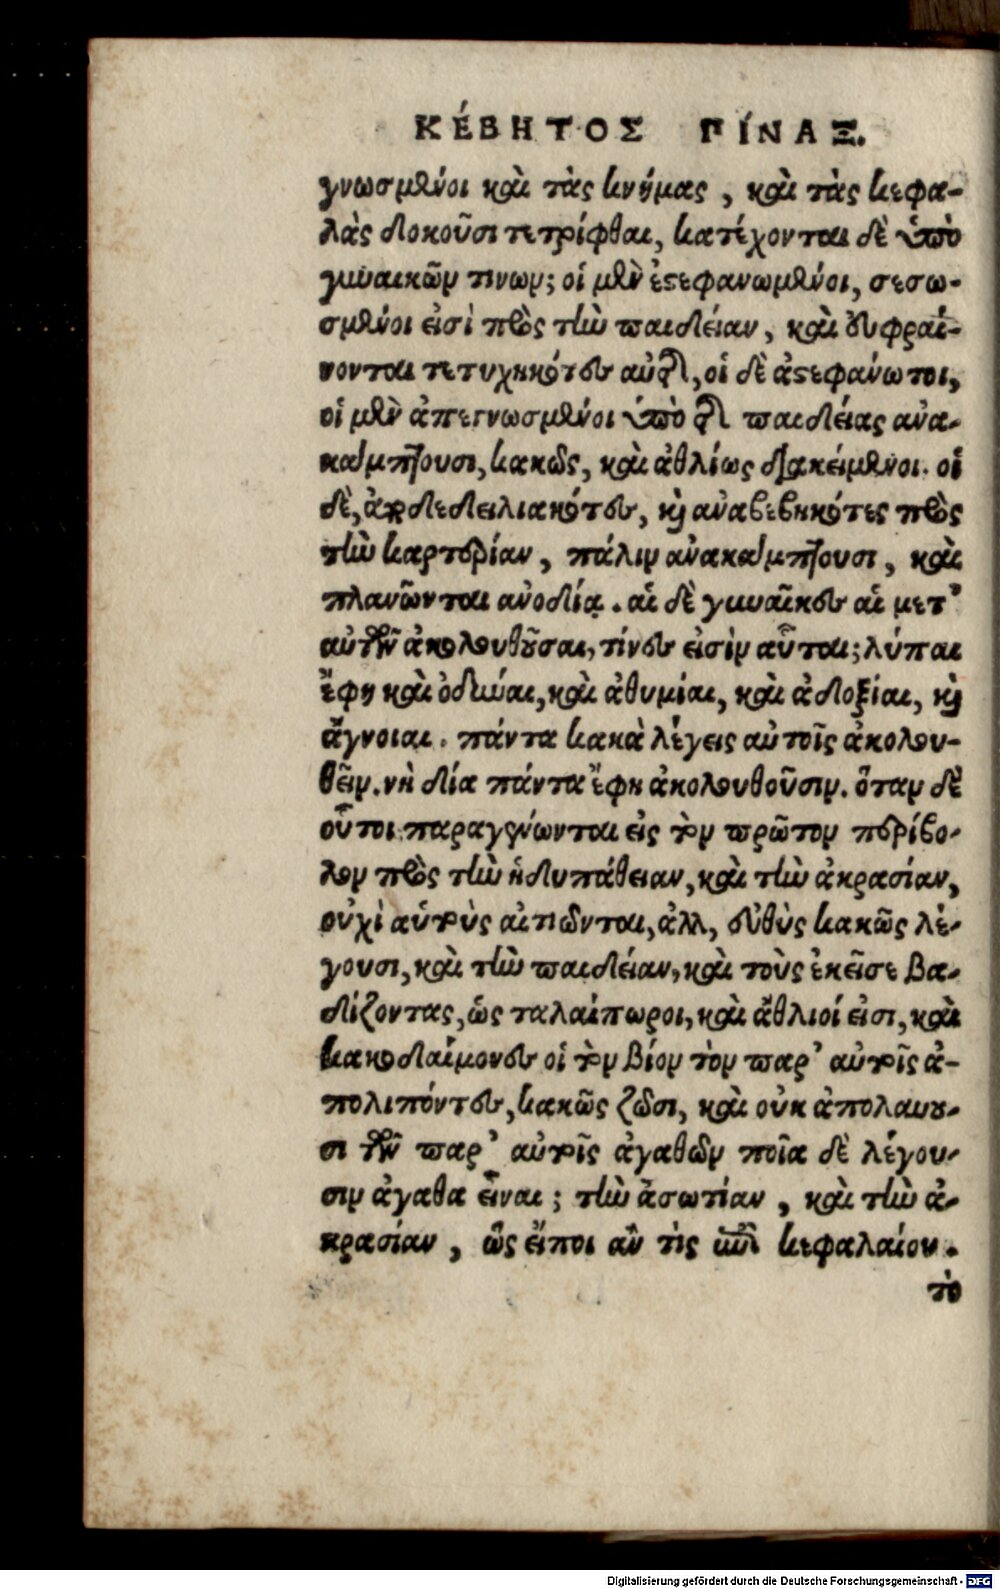 ΚΈΒΗΤΟΣ ΠΊΝΑΞ.
γνωσμένοι καὶ τὰς κνήμας, καὶ τὰς κεφα-
λὰς δοκοῦσι τετρίφθαι, κατέχονται δὲ ὑπὸ
γυναικῶν τινων; οἱ μὲν ἐστεφανωμένοι, σεσω-
σμένοι εἰσὶ πρὸς τὴν παιδείαν, καὶ εὐφραί-
νονται τετυχηκότες αὐτῆς, οἱ δὲ ἀστεφάνωτοι,
οἱ μὲν ἀπεγνωσμένοι ὑπὸ τῆς παιδείας ἀνα-
κάμπτουσι, κακῶς, καὶ ἀθλίως διακείμενοι. οἱ
δὲ, ἀποδεδειλιακότες, καὶ ἀναβεβηκότες πρὸς
τὴν καρτερίαν, πάλιν ἀνακάμπτουσι, καὶ
πλανῶνται ἀνοδίᾳ. αἱ δὲ γυναῖκες αἱ μετ'
αὐτῶν ἀκολουθοῦσαι, τίνες εἰσὶν αὗται; λύπαι
ἔφη καὶ ὀδύναι, καὶ ἀθυμίαι, καὶ ἀδοξίαι, καὶ
ἄγνοιαι. πάντα κακὰ λέγεις αὐτοῖς ἀκολου-
θεῖν. νὴ δία πάντα ἔφη ἀκολουθοῦσιν. ὅταν δὲ
οὗτοι παραγένωνται εἰς τὸν πρῶτον περίβο-
λον πρὸς τὴν ἡδυπάθειαν, καὶ τὴν ἀκρασίαν,
οὐχὶ αὑτοὺς αἰτιῶνται, ἀλλ, εὐθὺς κακῶς λέ-
γουσι, καὶ τὴν παιδείαν, καὶ τοὺς ἐκεῖσε βα-
δίζοντας, ὡς ταλαίπωροι, καὶ ἄθλιοί εἰσι, καὶ
κακοδαίμονες οἱ τὸν βίον τὸν παρ' αὐτοῖς ἀ-
πολιπόντες, κακῶς ζῶσι, καὶ οὐκ ἀπολαύου-
σι τῶν παρ' αὐτοῖς ἀγαθῶν ποῖα δὲ λέγου-
σιν ἀγαθα εἶναι; τὴν ἀσωτίαν, καὶ τὴν ἀ-
κρασίαν, ὡς εἴποι ἄν τὶς ἐπὶ κεφαλαίου.
τὸ
Digitalisierung gefördert durch die Deutsche Forschungsgemeinschaft - DFG